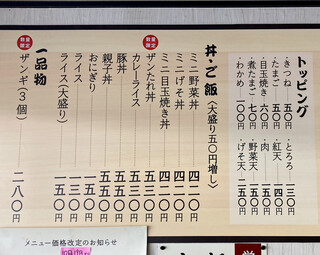 トッピング
・きつね 五〇円
・たまご 五〇円
・目玉焼き 六〇円
・煮たまご 七〇円
・わかめ 一〇〇円
・とろろ 一三〇円
・紅天 一二〇円
・肉 一五〇円
・野菜天 一五〇円
・げそ天 一五〇円
丼・ご飯(大盛り五〇円増し)
ミニ野菜丼 四二〇円
ミニげそ丼 四二〇円
ミニ目玉焼き丼 四二〇円
数量限定
ザンたれ丼 五三〇円
カレーライス 五五〇円
豚丼 五五〇円
親子丼 五五〇円
おにぎり 一五〇円
ライス 一三〇円
ライス(大盛り) 一五〇円
一品物
数量限定
ザンギ(3個) 二八〇円
メニュー価格改定のお知らせ